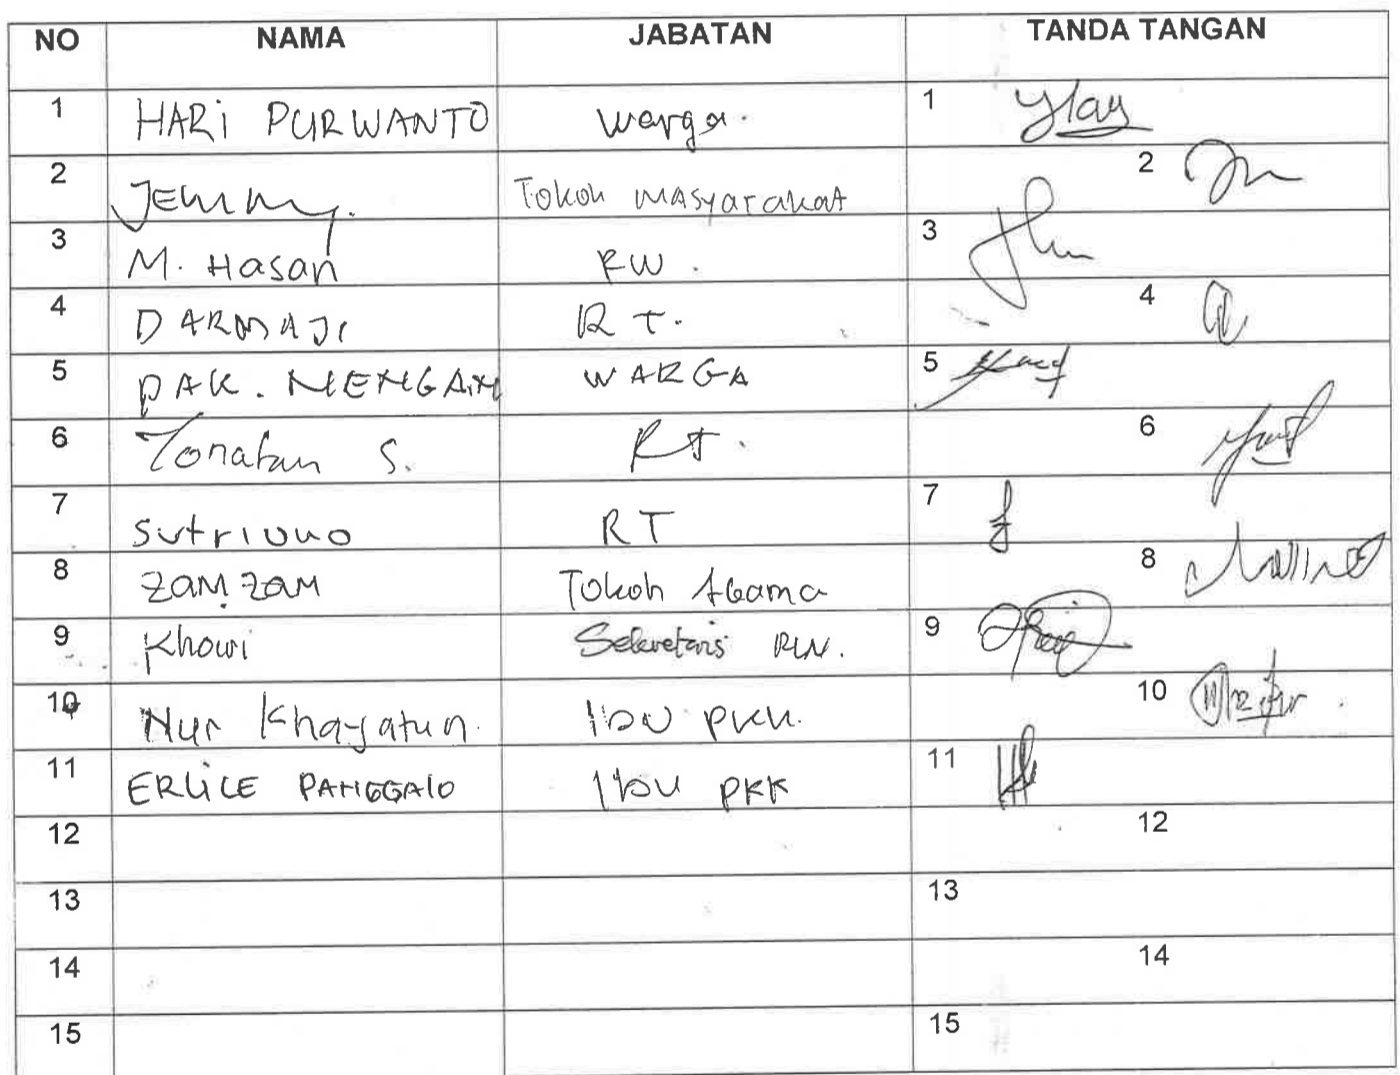 NO NAMA JABATAN TANDA TANGAN
1 HARI PURWANTO Warga. 1
2 JEMMY. Tokoh Masyarakat 2
3 M. Hasan RW. 3
4 DARMAJI RT. 4
5 PAK. WARGA 5
6 Yonatan S. RT. 6
7 Sutriono RT 7
8 ZAMZAM Tokoh Agama 8
9 Khowi Sekretaris RW. 9
10 Nur Khayatun. Ibu PKK. 10
11 Ibu PKK 11
12 12
13 13
14 14
15 15